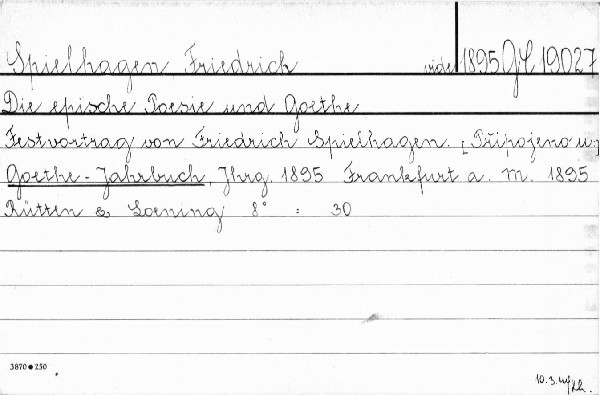 Spielhagen Friedrich vide 1895 GJ 19027
Die epische Poesie und Goethe
Festvortrag von Friedrich Spielhagen. [Připojeno u:]
Goethe-Jahrbuch, Jhrg. 1895 Frankfurt a. M. 1895
Rütten & Loening 8° = 30
3870●250
10.3.